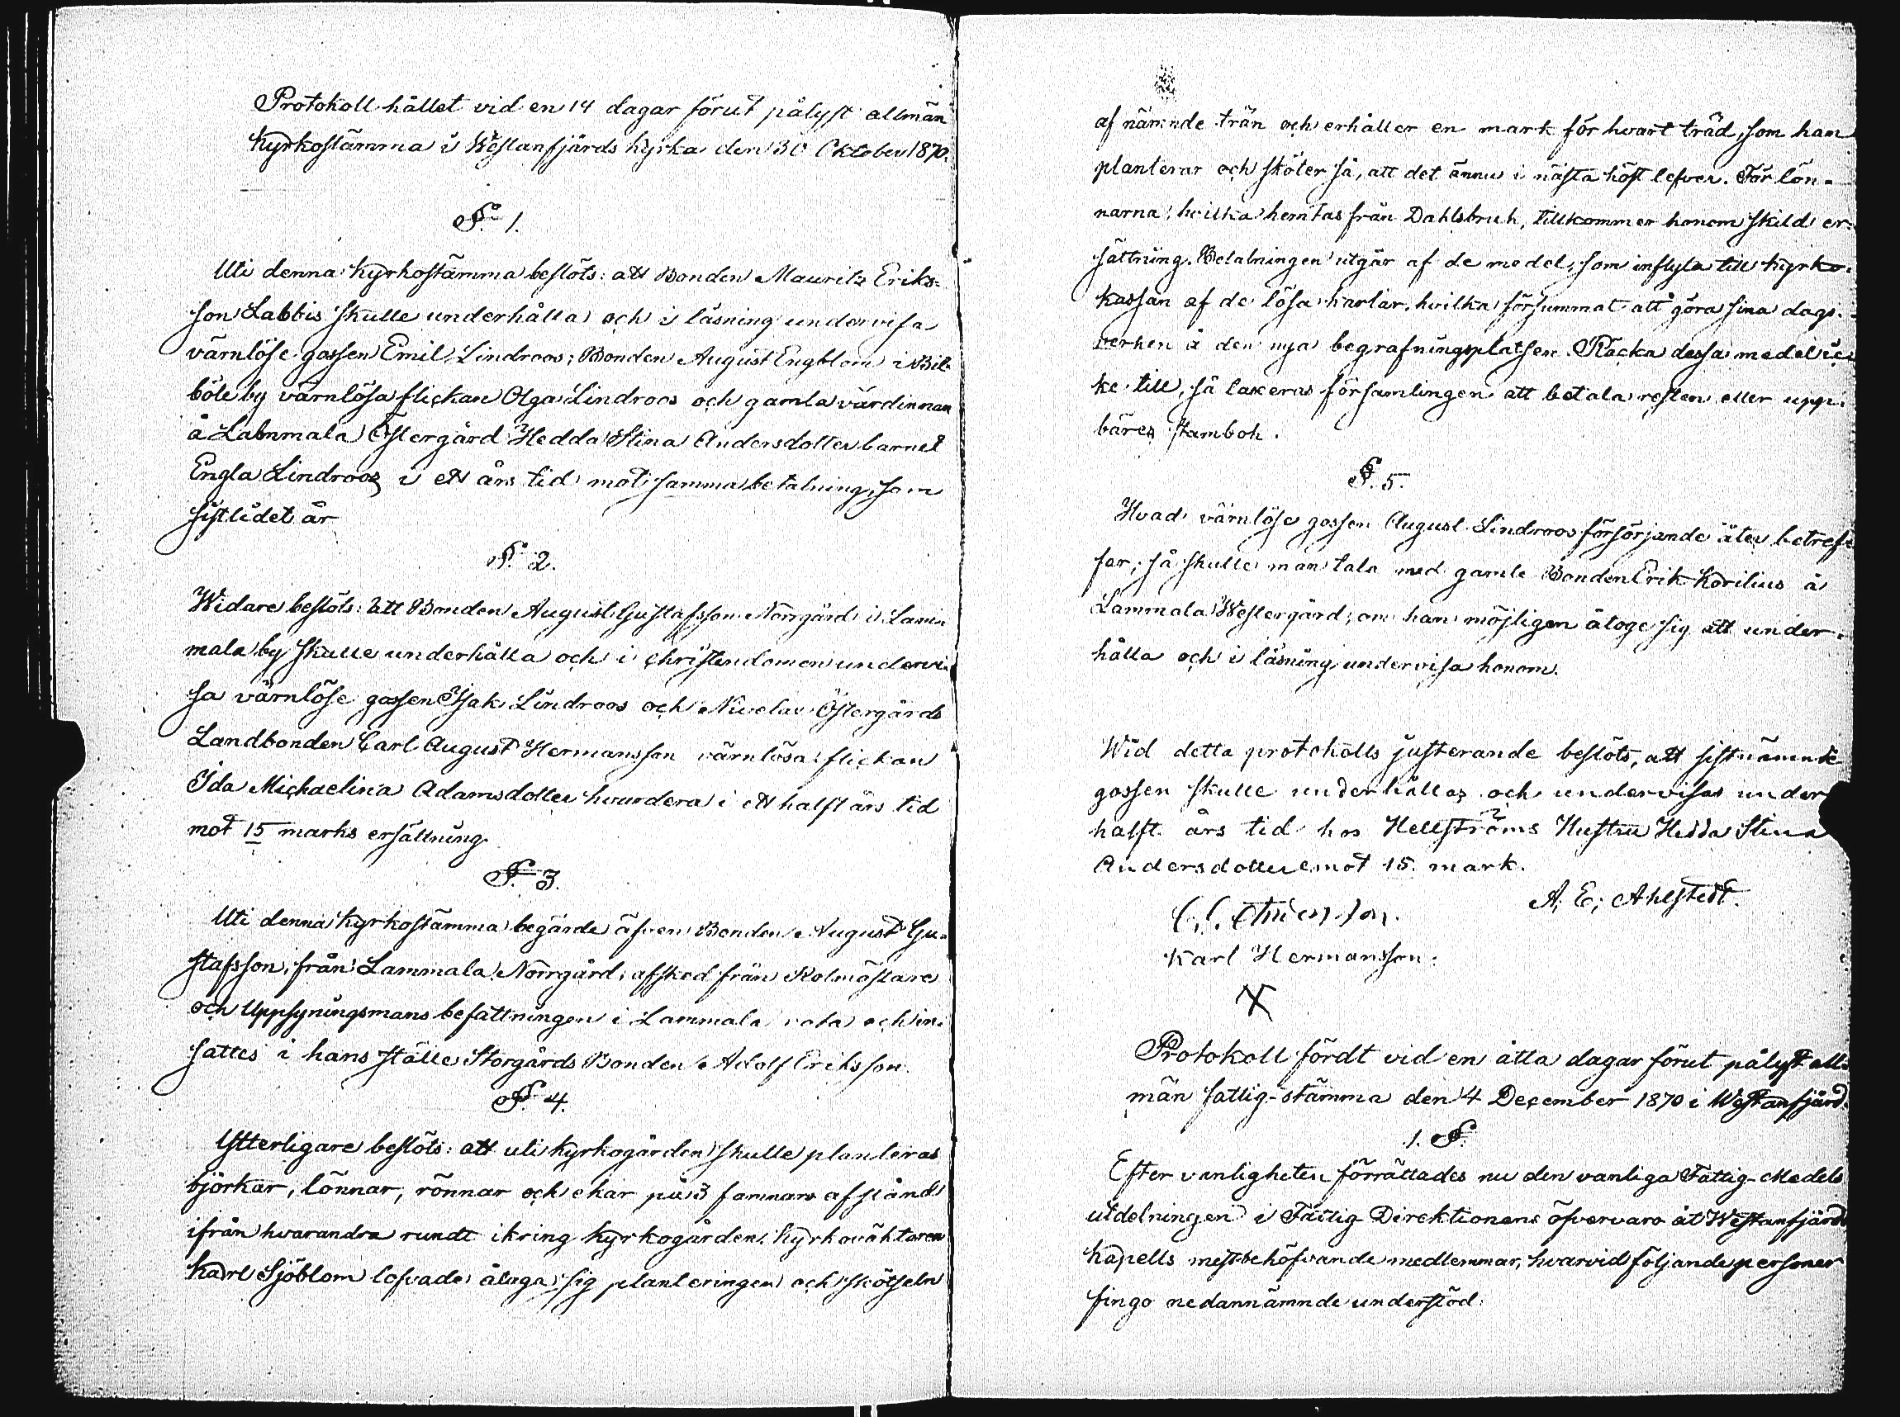 Protokoll hållet vid en 14 dagar förut pålyst allmän
Kyrkostämma i Westanfjärds kyrka den 30 Oktober 1870.
§. 1.
Uti denna kyrkostämma beslöts: att Bonden Mauritz Eriks-
son Labbis skulle underhålla och i läsning undervisa
värnlöse gossen Emil Lindroos; Bonden August Engblom i Bil-
böle by värnlösa flickan Olga Lindroos och gamla värdinnan
å Lammala Östergård Hedda Stina Andersdotter barnet
Engla Lindroos i ett års tid mot samma betalning, som
sistlidet år
§. 2.
Widare beslöts: att Bonden August Gustafsson Norrgård i Lam-
mala by skulle underhålla och i christendomen undervi-
sa värnlöse gossen Isak Lindroos och Nivelax Östergårds
Landbonden Carl August Hermansson värnlösa flickan
Ida Michaelina Adamsdotter hvardera i ett halft års tid
mot 15 marks ersättning.
§. 3.
Uti denna kyrkostämma begärde äfven Bonden August Gu-
stafsson, från Lammala Norrgård, afsked från Rotmästare
och Uppsyningsmans befattningen i Lammala rota och in-
sattes i hans ställe Storgårds Bonden Adolf Eriksson.
§. 4.
Ytterligare beslöts: att uti kyrkogården skulle planteras
björkar, lönnar, rönnar och ekar på 3 famnars afstånd
ifrån hvarandra rundt ikring kyrkogården. Kyrkoväktaren
Karl Sjöblom lofvade åtaga sig planteringen och skötseln
af nämnde trän och erhåller en mark för hvart träd, som han
planterar och sköter så, att det ännu i nästa höst lefver. För lön-
narna, hvilka hemtas från Dahlsbruk, tillkommer honom skild er-
sättning. Betalningen utgår af de medel, som inflyta till kyrko-
kassan af de lösa karlar, hvilka försummat att göra sina dags-
verken å den nya begrafningsplatsen. Räcka dessa medel ic-
ke till, så taxeras församlingen att betala resten eller upp-
bäres stambok.
§. 5.
Hvad värnlöse gossen August Lindroos försörjande åter betref-
far, så skulle man tala med gamle Bonden Erik Korilius å
Lammala Westergård, om han möjligen åtoge sig att under-
hålla och i läsning undervisa honom.
Wid detta protokolls justerande beslöts, att sistnämnde
gossen skulle underhållas och undervisas under
halft års tid hos Hellströms Hustru Hedda Stina
Andersdotter emot 15 mark.
A. E. Ahlstedt.
Karl Hermansson.
X
Protokoll fördt vid en åtta dagar förut pålyst all-
män fattig-stämma den 4 December 1870 i Westanfjärd.
1. §.
Efter vanligheten förrättades nu den vanliga Fattig-Medels
utdelningen i Fattig Direktionens öfvervaro åt Westanfjärds
kapells mest behöfvande medlemmar, hvarvid följande personer
fingo nedannämnde understöd: